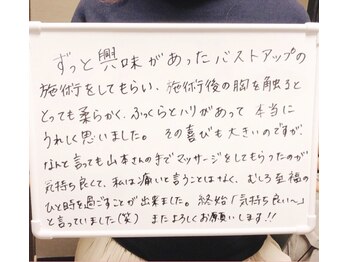 ずっと興味があったバストアップの
施術をしてもらい、施術後の胸を触ると
とっても柔らかく、ふっくらとハリがあって 本当に
うれしく思いました。 その喜びも大きいのですが、
なんと言っても山本さんの手でマッサージをしてもらったのが
気持ち良くて、私は痛いと言うことはなく、むしろ至福の
ひと時を過ごすことが出来ました。終始「気持ち良い〜」
と言っていました(笑) またよろしくお願いします!!